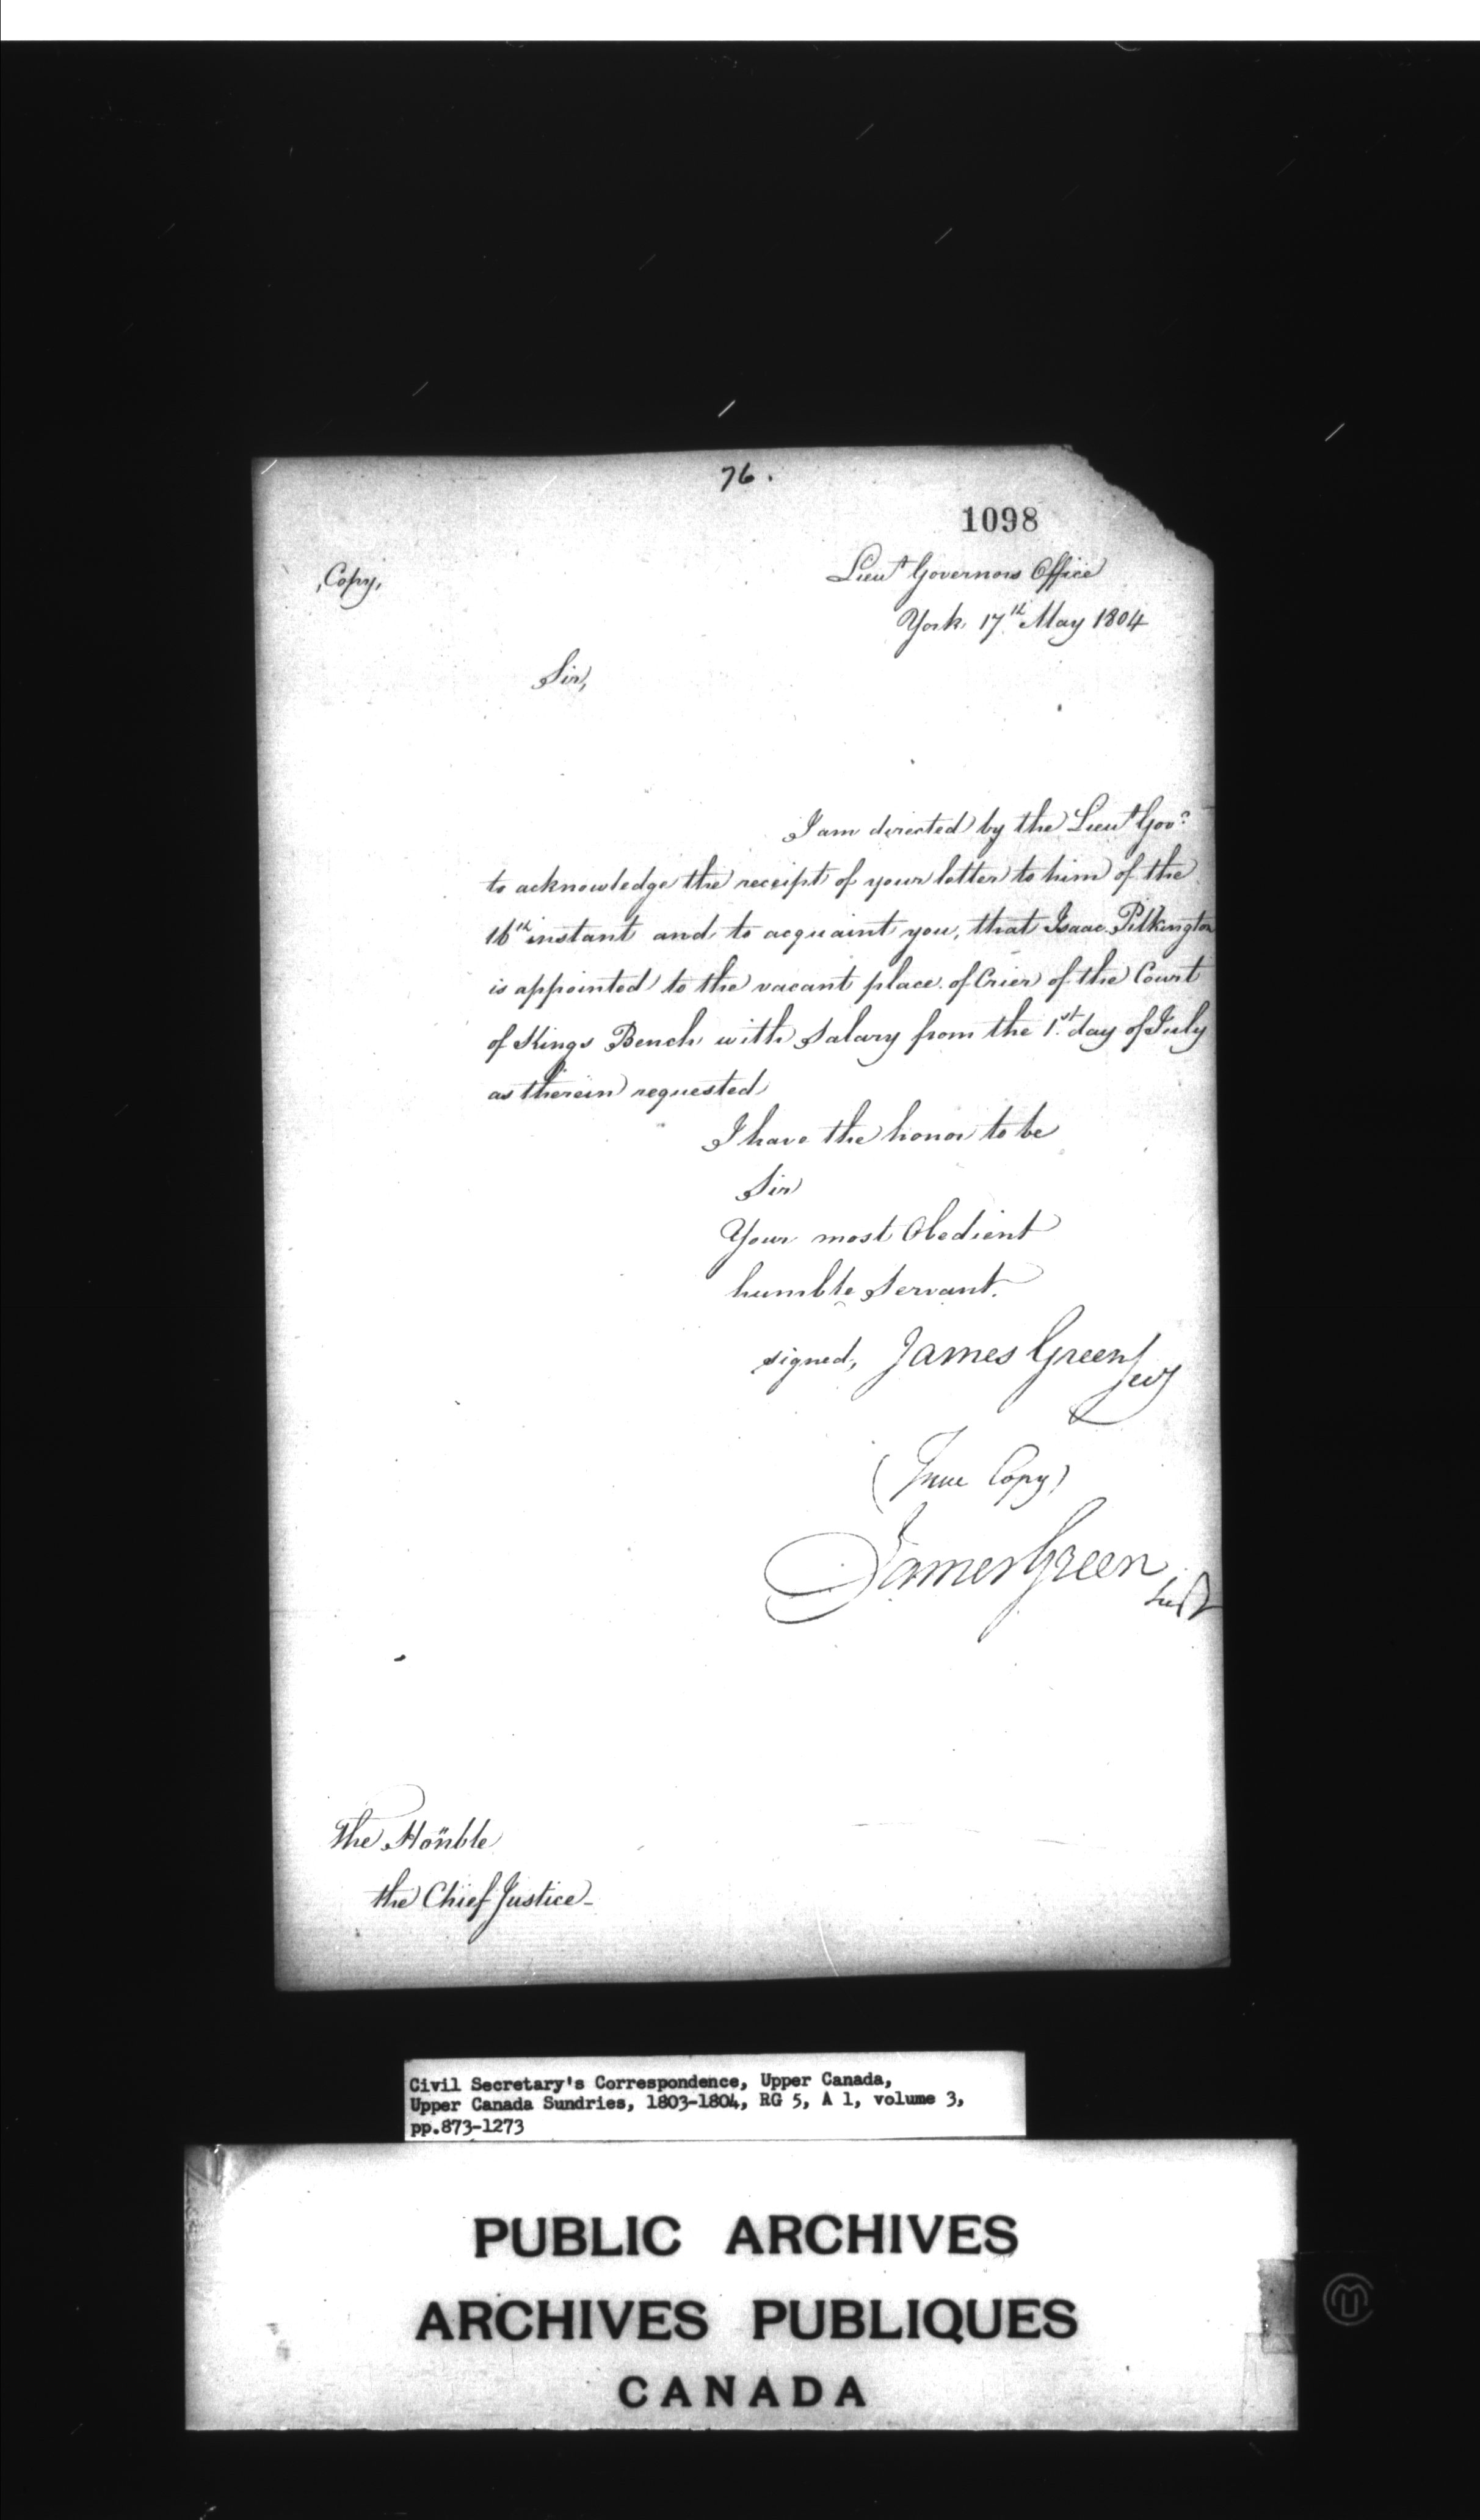 76.
1098
Copy,
Lieut Governors Office
York 17th May 1804
Sir,
I am directed by the Lieut Govr
to acknowledge the receipt of your letter to him of the
16th instant and to acquaint you, that Isaac Pilkington
is appointed to the vacant place of Crier of the Court
of Kings Bench with Salary from the 1st day of July
as therein requested
I have the honor to be
Sir
Your most Obedient
humble Servant.
signed, James Green Secy
(True Copy)
James Green
The Honble
the Chief Justice
Civil Secretary's Correspondence, Upper Canada,
Upper Canada Sundries, 1803-1804, RG 5, A 1, volume 3,
pp.873-1273
PUBLIC ARCHIVES
ARCHIVES PUBLIQUES
CANADA